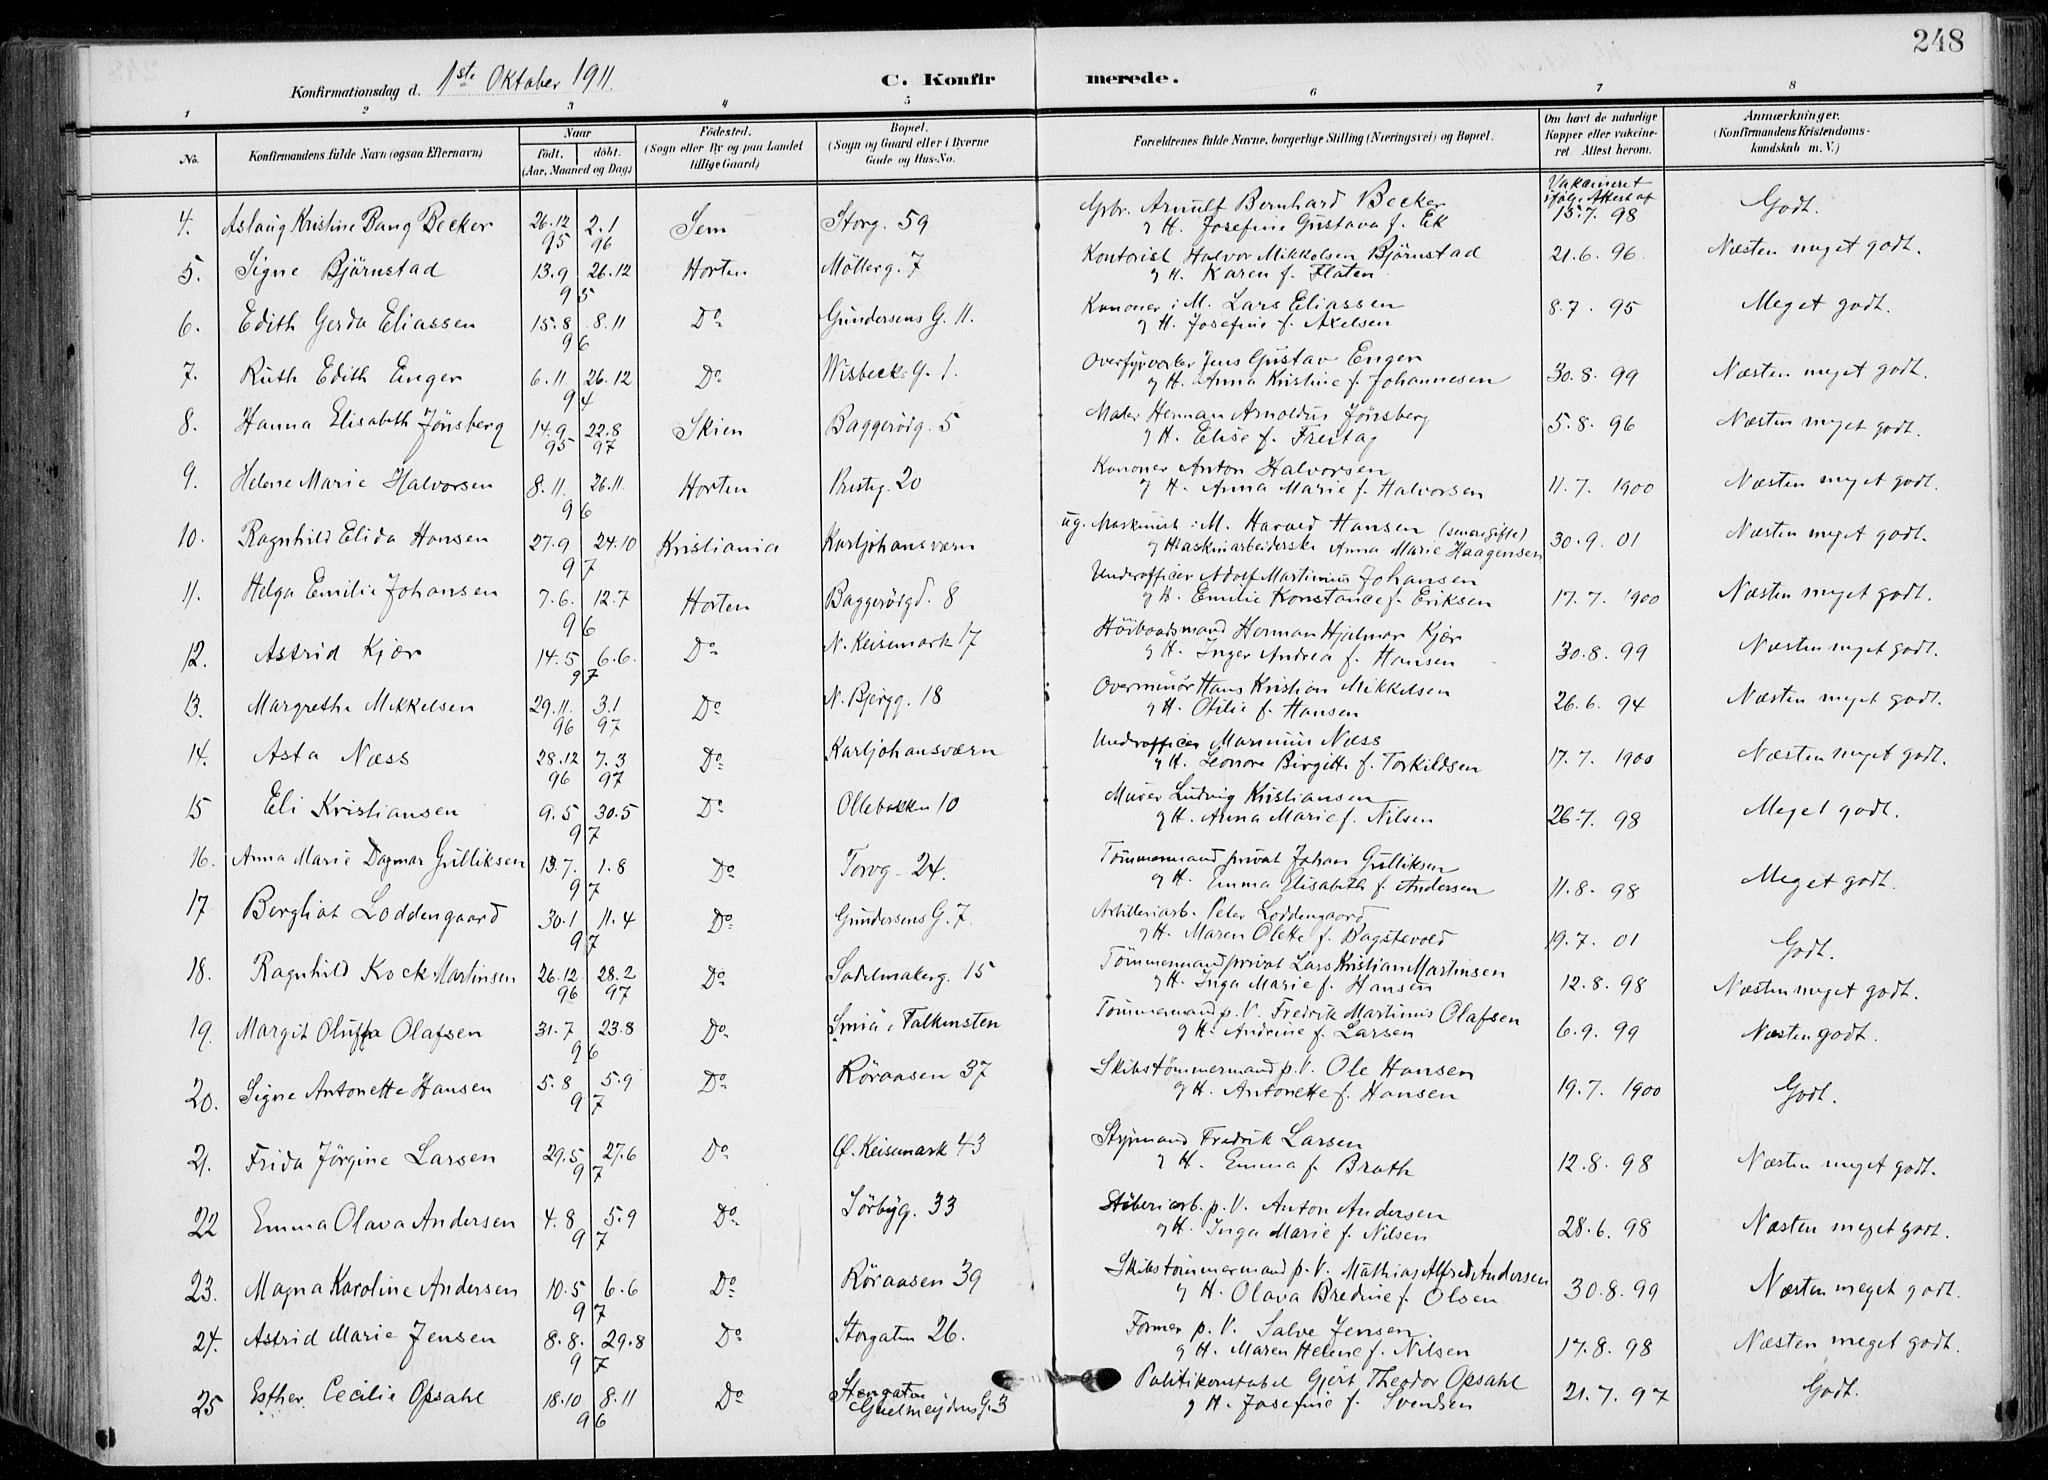 248
Konfirmationsdag d. 1ste Oktober 1911. C. Konfirmerede.
1 2 3 4 5 6 7 8
No. Konfirmandens fulde Navn (ogsaa Efternavn) Naar födt. döbt. (Aar, Maaned og Dag) Födested. (Sogn eller By og paa Landet tillige Gaard) Bopæl. (Sogn og Gaard eller i Byerne Gade og Hus-No. Forældrenes fulde Navne, borgerlige Stilling (Næringsvei) og Bopæl. Om havt de naturlige Kopper eller vakcineret Attest herom. Anmærkninger. (Konfirmandens Kristendomskundskab m. V.)
4. Aslaug Kristine Bang Becker 26.12 95 2.1 96 Sem Storg. 59 Grbr. Arnulf Bernhard Becker
g H. Josefine Gustava f. Ek Vakcineret ifølge Attest af 15.7. 98 Godt.
5. Signe Björnstad 13.9 26.12 95 Horten Möllerg. 7 Kontorist Halvor Mikkelsen Björnstad
g H. Karen f. Flåten 21.6. 96. Næsten meget godt.
6. Edith Gerda Eliassen 15.8 8.11 96 Do Gundersens G. 11. Kanoner i M. Lars Eliassen
g H. Josefine f. Axelsen 8.7. 95 Meget godt.
7. Ruth Edith Enger 6.11. 26.12 94 Do Wisbecks G. 1. Overfyrböter Jens Gustav Enger
g H. Anna Kristine f. Johannesen 30.8. 99 Næsten meget godt.
8. Hanna Elisabeth Jönsberg 14.9 95 22.8 97 Skien Baggerödg. 5 Maler Herman Arnoldus Jönsberg
g H. Elise f. Freitag 5.8. 96 Næsten meget godt.
9. Helene Marie Halvorsen 8.11. 26.11. 96 Horten Prestg. 20 Kanoner Anton Halvorsen
g H. Anna Marie f. Halvorsen 11.7. 1900 Næsten meget godt.
10. Ragnhild Elida Hansen 27.9 24.10 97 Kristiania Karljohansværn ug. Maskinist i M. Harald Hansen (senere gifte)
g Maskinarbeiderske Anna Marie Haagensen 30.9. 01 Næsten meget godt.
11. Helga Emilie Johansen 7.6. 12.7 96 Horten Baggerödgd. 8 Underofficer Adolf Martinius Johansen
g H. Emilie Konstance f. Eriksen 17.7. 1900 Næsten meget godt.
12. Astrid Kjær 14.5 6.6. 97 Do N. Keisemark 17 Höibaadsmand Herman Hjalmar Kjær
g H. Inger Andrea f. Hansen 30.8. 99 Næsten meget godt.
13. Margrethe Mikkelsen 29.11. 96 3.1 97 Do N. Bjergg. 18 Overminör Hans Kristian Mikkelsen
g H. Otilie f. Hansen 26.6. 94 Næsten meget godt.
14. Asta Næss 28.12 96 7.3 97 Do Karljohansværn Underofficer Marinius Næss
g H. Leonore Birgitte f. Torkildsen 17.7. 1900 Næsten meget godt.
15 Eli Kristiansen 9.5 30.5 97 Do Ollebakken 10 Murer Ludvig Kristiansen
g H. Anna Marie f. Nilsen 26.7. 98 Meget godt.
16. Anna Marie Dagmar Gulliksen 13.7. 1.8 97 Do Torvg. 24. Tömmermand privat Johan Gulliksen
g H. Emma Elisabeth f. Andersen 11.8. 98 Meget godt.
17 Bergliot Loddengaard 30.1 11.4 97 Do Gundersens G. 7. Artilleriarb. Peter Loddengaard
g H. Maren Olette f. Bagstevold 19.7. 01 Godt.
18. Ragnhild Kock Martinsen 26.12 96 28.2 97 Do Sadelmakerg. 15 Tömmermand privat Lars Kristian Martinsen
g H. Inga Marie f. Hansen 12.8. 98 Næsten meget godt.
19. Margit Oluffa Olafsen 31.7 23.8 96 Do Smiä i Falkensten Tömmermand p. V. Fredrik Martinus Olafsen
g H. Andrine f. Larsen 6.9. 99 Næsten godt.
20. Signe Antonette Hansen 5.8 5.9 97 Do Röraasen 37 Skibstömmermand p. V. Ole Hansen
g H. Antonette f. Hansen 19.7. 1900 Godt.
21. Frida Jörgine Larsen 29.5 27.6 97 Do Ö. Keisemark 43 Styrmand Fredrik Larsen
g H. Emma f. Brath 12.8. 98 Næsten meget godt.
22 Emma Olava Andersen 4.8 5.9 97 Do Sörbyg. 33 Stöberiarb. p. V. Anton Andersen
g H. Inga Marie f. Nilsen 28.6. 98 Næsten meget godt.
23. Magna Karoline Andersen 10.5 6.6 97 Do Röraasen 39 Skibstömmermand p. V. Mathias Alfred Andersen
g H. Olava Bredine f. Olsen 30.8. 99 Næsten meget godt.
24. Astrid Marie Jensen 8.8. 29.8 97 Do Storgaten 26. Former p. V. Salve Jensen.
g H. Maren Helene f. Nilsen 17.8. 98 Næsten meget godt.
25 Esther Cecilie Opsahl 18.10 8.11 96 Do Storgaten G. 3 Politikonstabel Gjert Theodor Opsahl
g H. Josefine f. Svendsen 21.7. 97 Godt.